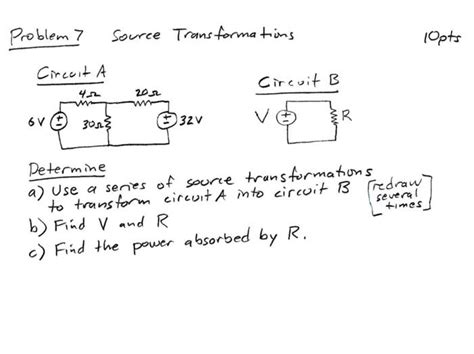 Problem 7 Source Transformations 10pts
Circuit A
Circuit B
4Ω 20Ω
6V 30Ω 32V
V R
Determine
a) Use a series of source transformations
to transform circuit A into circuit B [redraw several times]
b) Find V and R
c) Find the power absorbed by R.